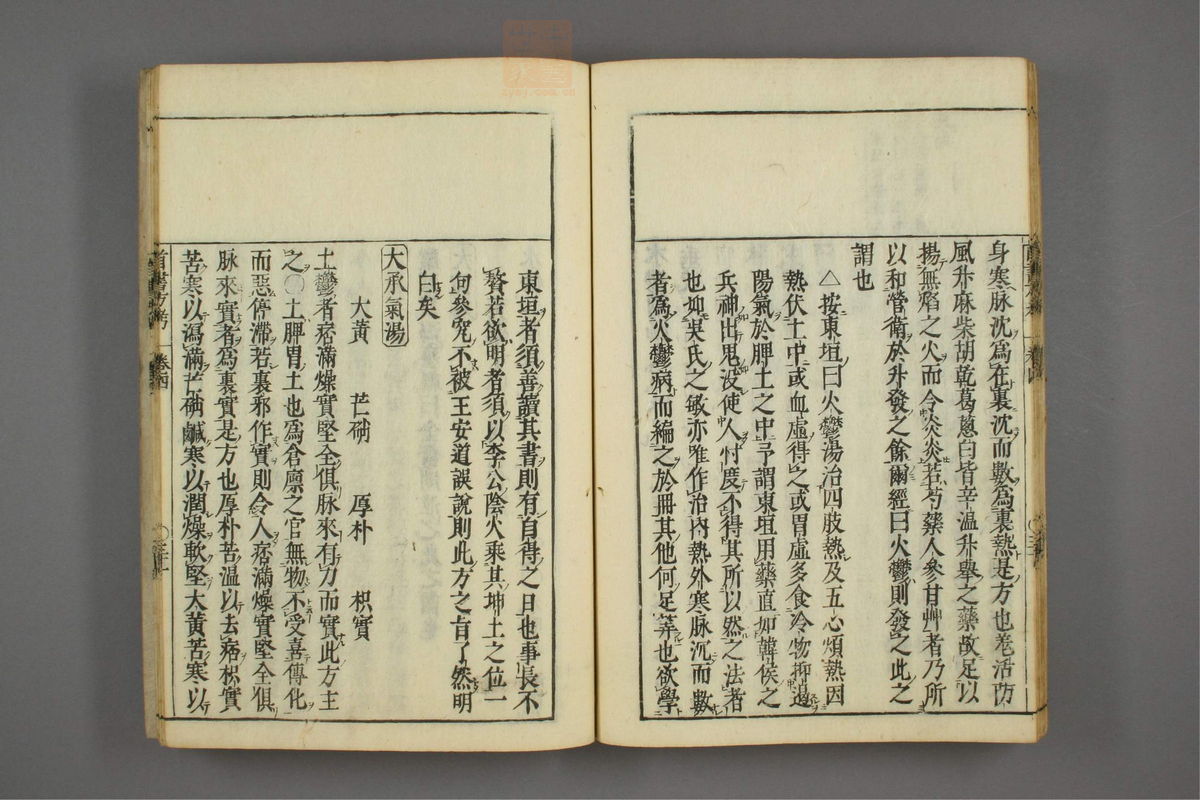 身寒脉沈爲在裏沈而數爲裏熱是方也羗活防
風升麻柴胡乾葛蔥白皆辛溫升舉之藥故足以
揚無焰之火而令炎炎若芍藥人參甘艸者乃所
以和營衛於升發之餘爾經曰火鬱則發之此之
謂也
△按東垣曰火鬱湯治四肢熱及五心煩熱因
熱伏土中或血虛得之或胃虛多食冷物抑遏
陽氣於脾土之中予謂東垣用藥直如韓侯之
兵神出鬼没使人忖度不得其所以然之法者
也抑吴氏之敏亦唯作治内熱外寒脉沉而數
者爲火鬱病而編之於冊其他何足筭也欲學
東垣者須善讀其書則有自得之日也事長不
贅若欲明者須以李公陰火乘其坤土之位一
句參究不被王安道誤說則此方之旨了然明
白矣
大承氣湯
大黄　芒硝　厚朴　枳實
土鬱者痞滿燥實堅全俱脉來有力而實此方主
之○土脾胃土也爲倉廪之官無物不受喜傳化
而惡停滯若裏邪作實則令人痞滿燥實堅全俱
脉來實者爲裏實是方也厚朴苦溫以去痞枳實
苦寒以瀉滿芒硝鹹寒以潤燥軟堅大黄苦寒以